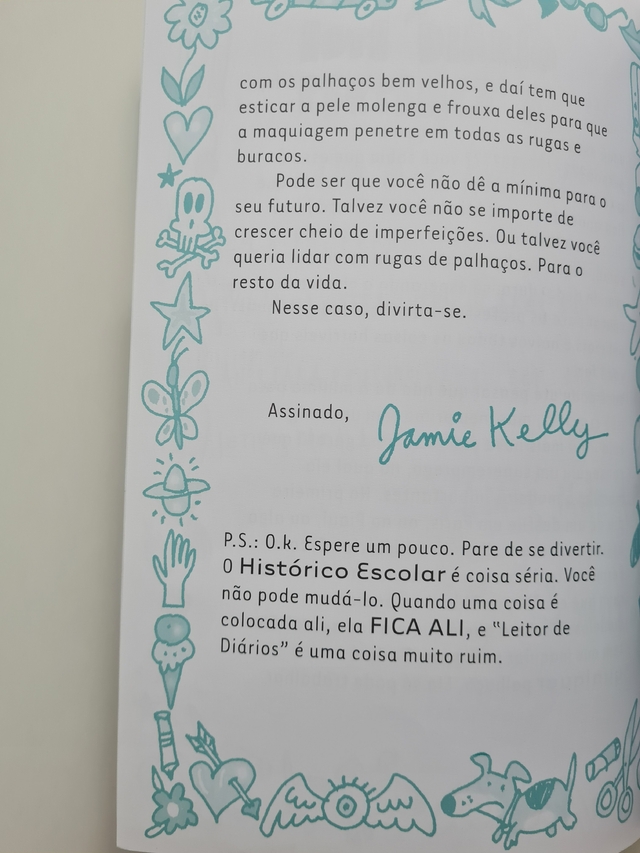 com os palhaços bem velhos, e daí tem que
esticar a pele molenga e frouxa deles para que
a maquiagem penetre em todas as rugas e
buracos.
Pode ser que você não dê a mínima para o
seu futuro. Talvez você não se importe de
crescer cheio de imperfeições. Ou talvez você
queria lidar com rugas de palhaços. Para o
resto da vida.
Nesse caso, divirta-se.
Assinado,
Jamie Kelly
P.S.: O.k. Espere um pouco. Pare de se divertir.
O Histórico Escolar é coisa séria. Você
não pode mudá-lo. Quando uma coisa é
colocada ali, ela FICA ALI, e “Leitor de
Diários” é uma coisa muito ruim.